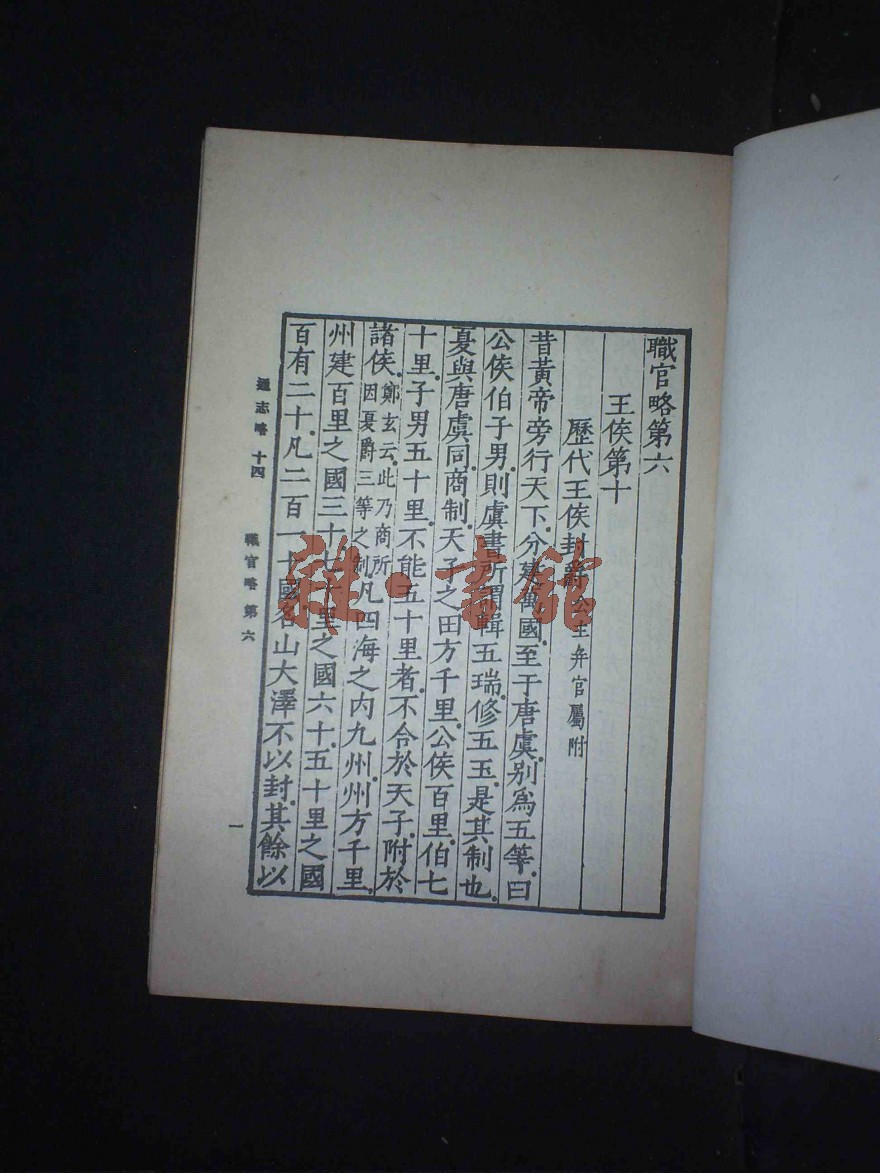 職官略第六
王侯第十
歷代王侯封爵公主并官屬附
昔黃帝旁行天下.分建萬國.至于唐虞.別爲五等.曰
公侯伯子男.則虞書所謂輯五瑞.修五玉.是其制也.
夏與唐虞同.商制.天子之田方千里.公侯百里.伯七
十里.子男五十里.不能五十里者.不合於天子.附於
諸侯.鄭玄云.此乃商所因夏爵三等之制.凡四海之內九州.州方千里.
州建百里之國三十.七十里之國六十.五十里之國
百有二十.凡二百一十國.名山大澤不以封.其餘以
通志略 十四 職官略 第六 一
雜·書館